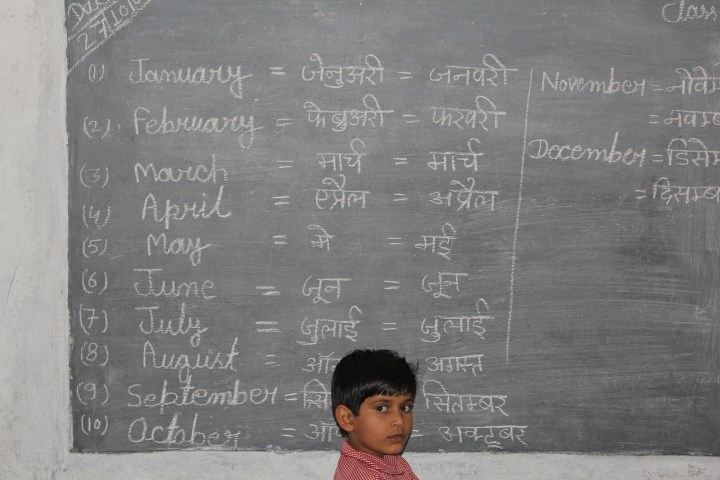 Date
27/10/0
Class
(1) January = जेनुअरी = जनवरी
(2). February = फेब्रुअरी = फरवरी
(3) March = मार्च = मार्च
(4) April = एप्रैल = अप्रैल
(5) May = मे = मई
(6) June = जून = जून
(7) July = जुलाई = जुलाई
(8) August = = अगस्त
(9) September = = सितम्बर
(10) Octaber = = अक्टूबर
November = नोवेम
= नवम्ब
December = डिसेम
= दिसम्ब